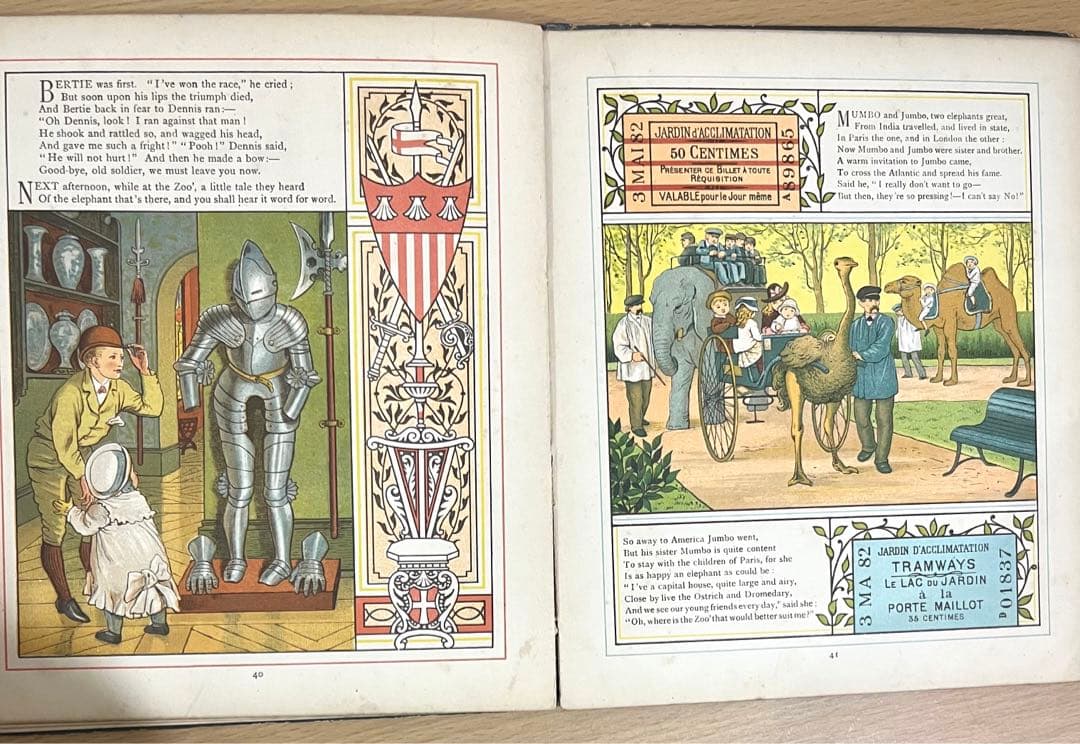 BERTIE was first. "I've won the race," he cried;
But soon upon his lips the triumph died,
And Bertie back in fear to Dennis ran:—
"Oh Dennis, look! I ran against that man!
He shook and rattled so, and wagged his head,
And gave me such a fright!" "Pooh!" Dennis said,
"He will not hurt!" And then he made a bow:—
Good-bye, old soldier, we must leave you now.
NEXT afternoon, while at the Zoo', a little tale they heard
Of the elephant that's there, and you shall hear it word for word.
40
3 MAI 82
JARDIN d'ACCLIMATATION
50 CENTIMES
PRÉSENTER CE BILLET À TOUTE
RÉQUISITION
VALABLE pour le Jour même
A 89865
MUMBO and Jumbo, two elephants great,
From India travelled, and lived in state,
In Paris the one, and in London the other:
Now Mumbo and Jumbo were sister and brother.
A warm invitation to Jumbo came,
To cross the Atlantic and spread his fame.
Said he, "I really don't want to go—
But then, they're so pressing!—I can't say No!"
So away to America Jumbo went,
But his sister Mumbo is quite content
To stay with the children of Paris, for she
Is as happy an elephant as could be:
"I've a capital house, quite large and airy,
Close by live the Ostrich and Dromedary,
And we see our young friends every day," said she:
"Oh, where is the Zoo' that would better suit me?"
3 MA 82
JARDIN D'ACCLIMATATION
TRAMWAYS
LE LAC DU JARDIN
à la
PORTE MAILLOT
35 CENTIMES
D01837
41